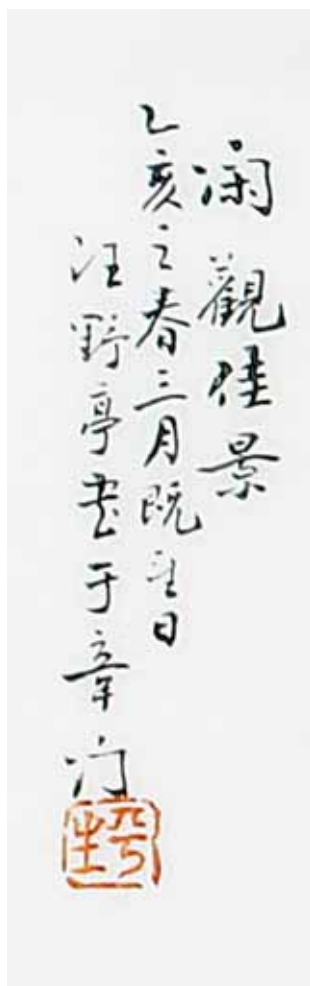 闲觀佳景
乙亥之春三月既望日
汪野亭畫于章门